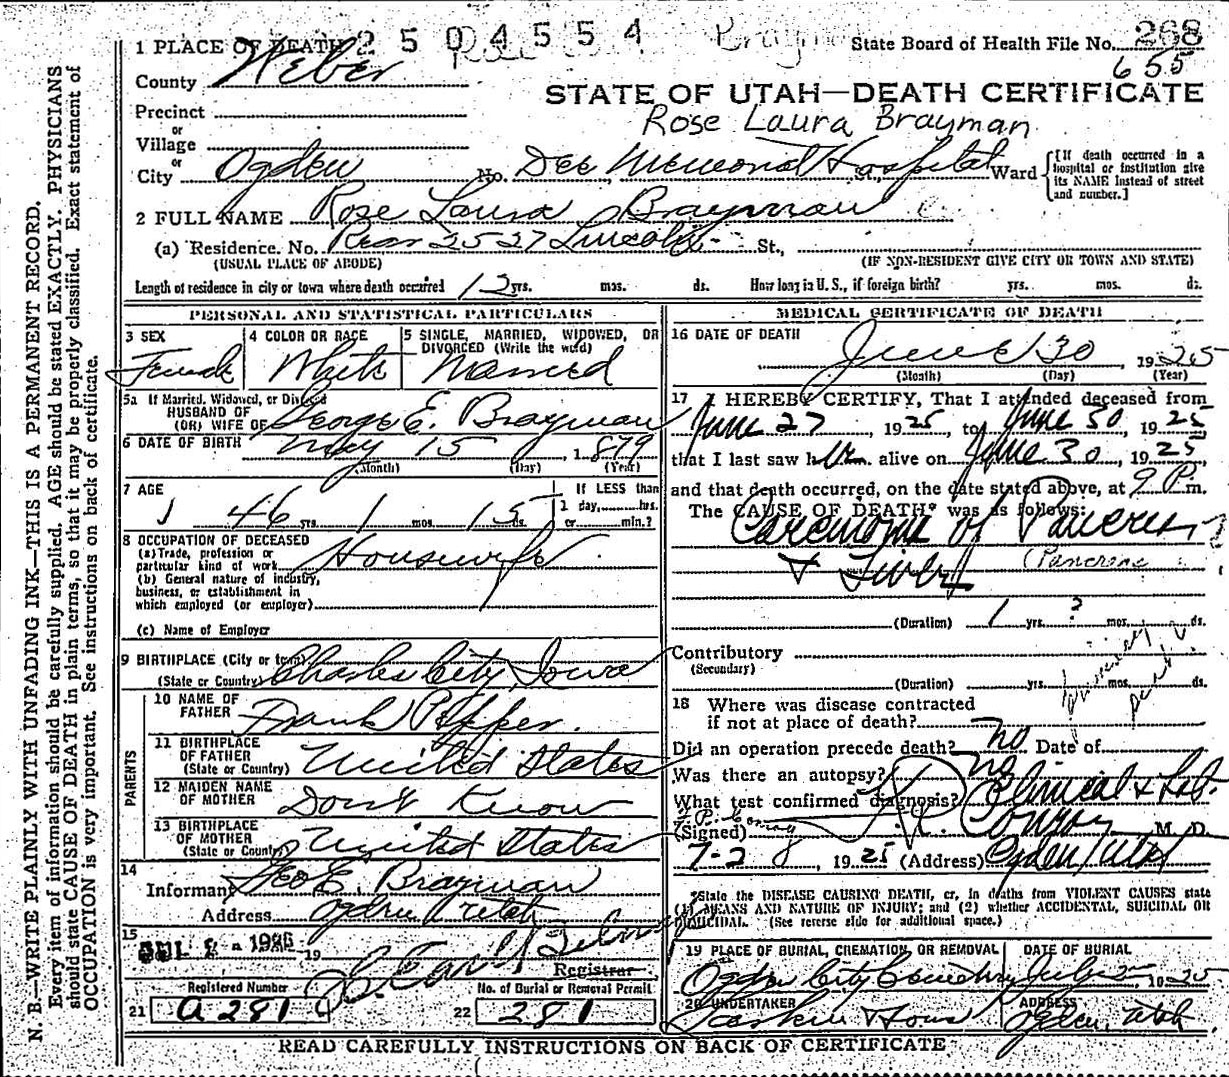 2504554
State Board of Health File No. 268
655
1 PLACE OF DEATH
County Weber
STATE OF UTAH—DEATH CERTIFICATE
Rose Laura Brayman
Precinct
or
Village
or
City Ogden No. Dee Memorial Hospital St., Ward
[If death occurred in a hospital or institution give its NAME instead of street and number.]
2 FULL NAME Rose Laura Brayman
(a) Residence. No. Rear 2527 Lincoln St.,
(USUAL PLACE OF ABODE) (IF NON-RESIDENT GIVE CITY OR TOWN AND STATE)
Length of residence in city or town where death occurred 12 yrs. mos. ds. How long in U. S., if foreign birth? yrs. mos. ds.
PERSONAL AND STATISTICAL PARTICULARS
3 SEX
Female
4 COLOR OR RACE
White
5 SINGLE, MARRIED, WIDOWED, OR DIVORCED (Write the word)
Married
5a If Married, Widowed, or Divorced
HUSBAND OF
(OR) WIFE OF George E. Brayman
6 DATE OF BIRTH May 15 1879
(Month) (Day) (Year)
7 AGE
46 yrs. 1 mos. 15 ds.
If LESS than
1 day, hrs.
or min.?
8 OCCUPATION OF DECEASED
(a) Trade, profession or
particular kind of work Housewife
(b) General nature of industry,
business, or establishment in
which employed (or employer)
(c) Name of Employer
9 BIRTHPLACE (City or town)
(State or Country) Charles City, Iowa
PARENTS
10 NAME OF
FATHER Frank Pepper
11 BIRTHPLACE
OF FATHER
(State or Country) United States
12 MAIDEN NAME
OF MOTHER Don't Know
13 BIRTHPLACE
OF MOTHER
(State or Country) United States
14
Informant Geo E. Brayman
Address Ogden Utah
15
19
Registrar
Registered Number
21 a 281
No. of Burial or Removal Permit
22 281
MEDICAL CERTIFICATE OF DEATH
16 DATE OF DEATH
June 30 1925
(Month) (Day) (Year)
17 I HEREBY CERTIFY, That I attended deceased from
June 27, 1925, to June 30, 1925
that I last saw her alive on June 30, 1925,
and that death occurred, on the date stated above, at 9 P. m.
The CAUSE OF DEATH* was as follows:
Carcinoma of Pancreas
& Liver
(Duration) 1 yrs. ? mos. ds.
Contributory
(Secondary)
(Duration) yrs. mos. ds.
18 Where was disease contracted
if not at place of death?
Did an operation precede death? no Date of
Was there an autopsy? no
What test confirmed diagnosis? Clinical & Lab.
(Signed) Conroy M. D.
7-2, 1925 (Address) Ogden Utah
*State the DISEASE CAUSING DEATH, or, in deaths from VIOLENT CAUSES state
(1) MEANS AND NATURE OF INJURY; and (2) whether ACCIDENTAL, SUICIDAL OR
HOMICIDAL. (See reverse side for additional space.)
19 PLACE OF BURIAL, CREMATION, OR REMOVAL
Ogden City Cemetery
DATE OF BURIAL
July 2 1925
20 UNDERTAKER
ADDRESS
Ogden, Utah
READ CAREFULLY INSTRUCTIONS ON BACK OF CERTIFICATE
N. B.—WRITE PLAINLY WITH UNFADING INK—THIS IS A PERMANENT RECORD.
Every item of information should be carefully supplied. AGE should be stated EXACTLY. PHYSICIANS
should state CAUSE OF DEATH in plain terms, so that it may be properly classified. Exact statement of
OCCUPATION is very important. See instructions on back of certificate.